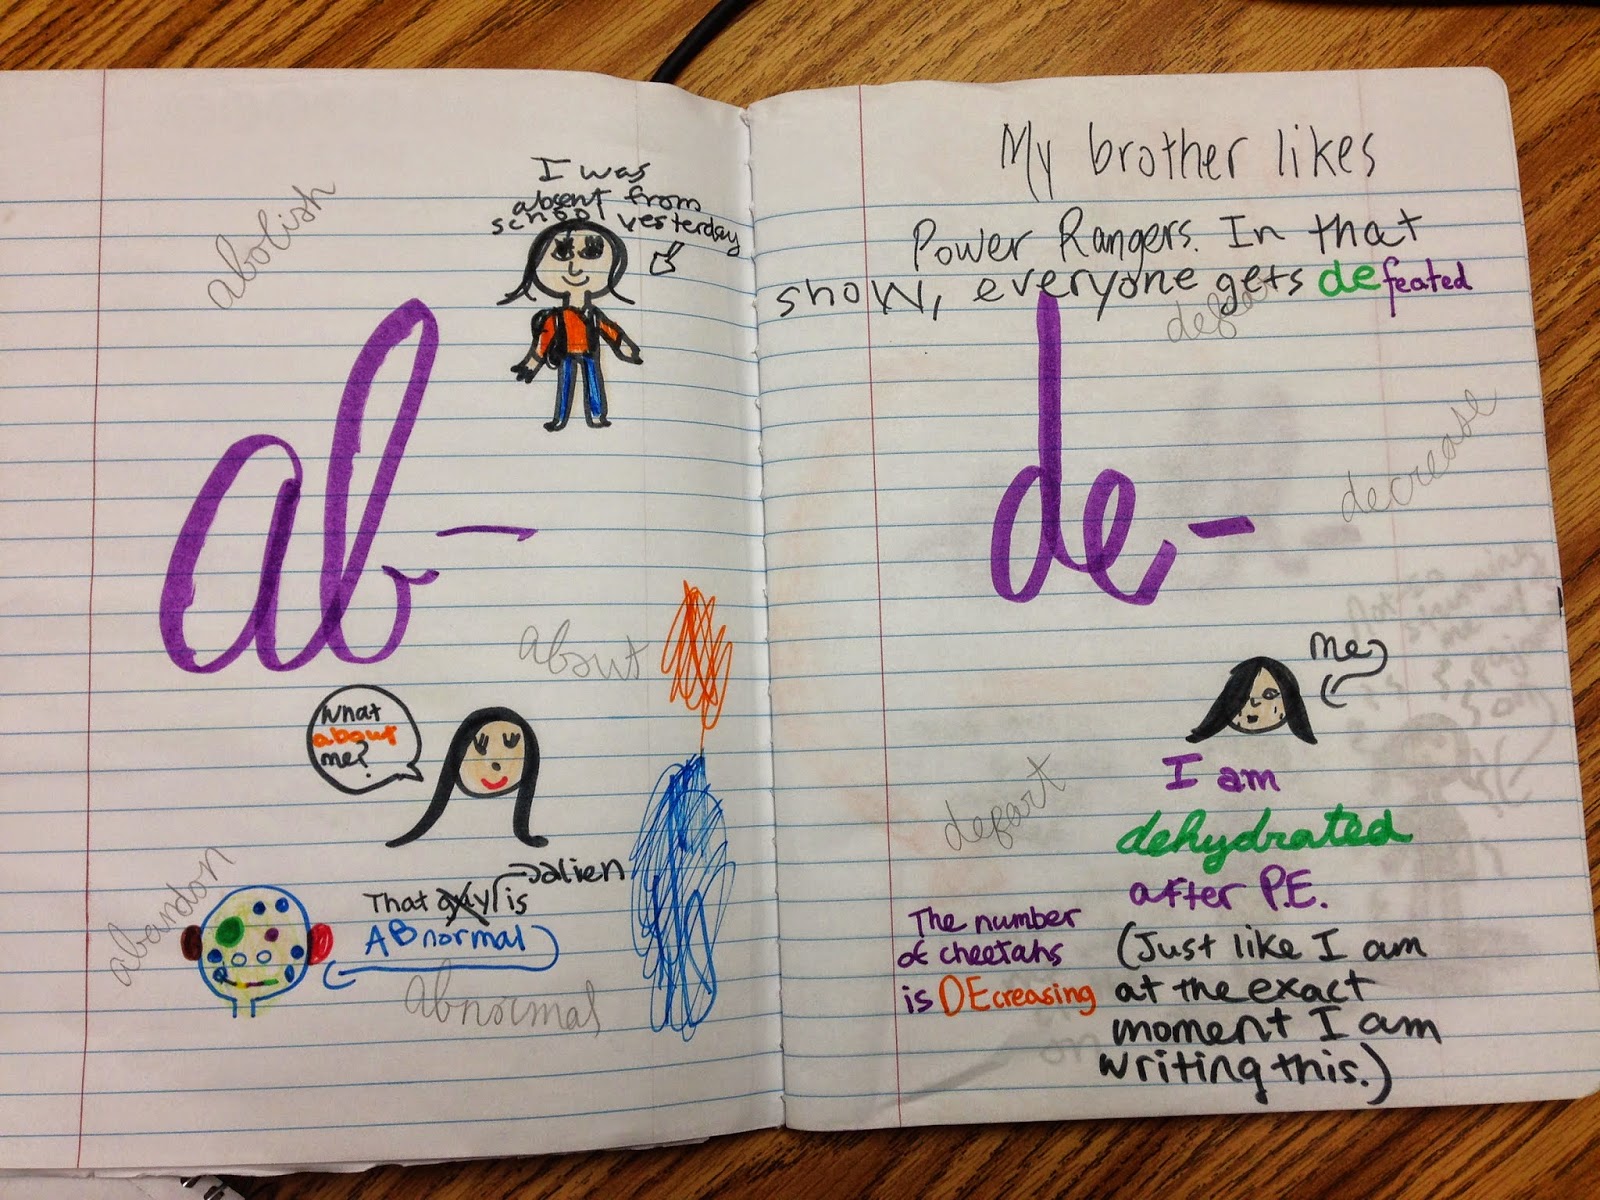 abolish
I was
absent from
school yesterday
ab-
about
What
about
me?
abandon
alien
That is
ABnormal
abnormal
My brother likes
Power Rangers. In that
show, everyone gets defeated
de-
decrease
me
depart
I am
dehydrated
after P.E.
(Just like I am
at the exact
moment I am
writing this.)
The number
of cheetahs
is DEcreasing